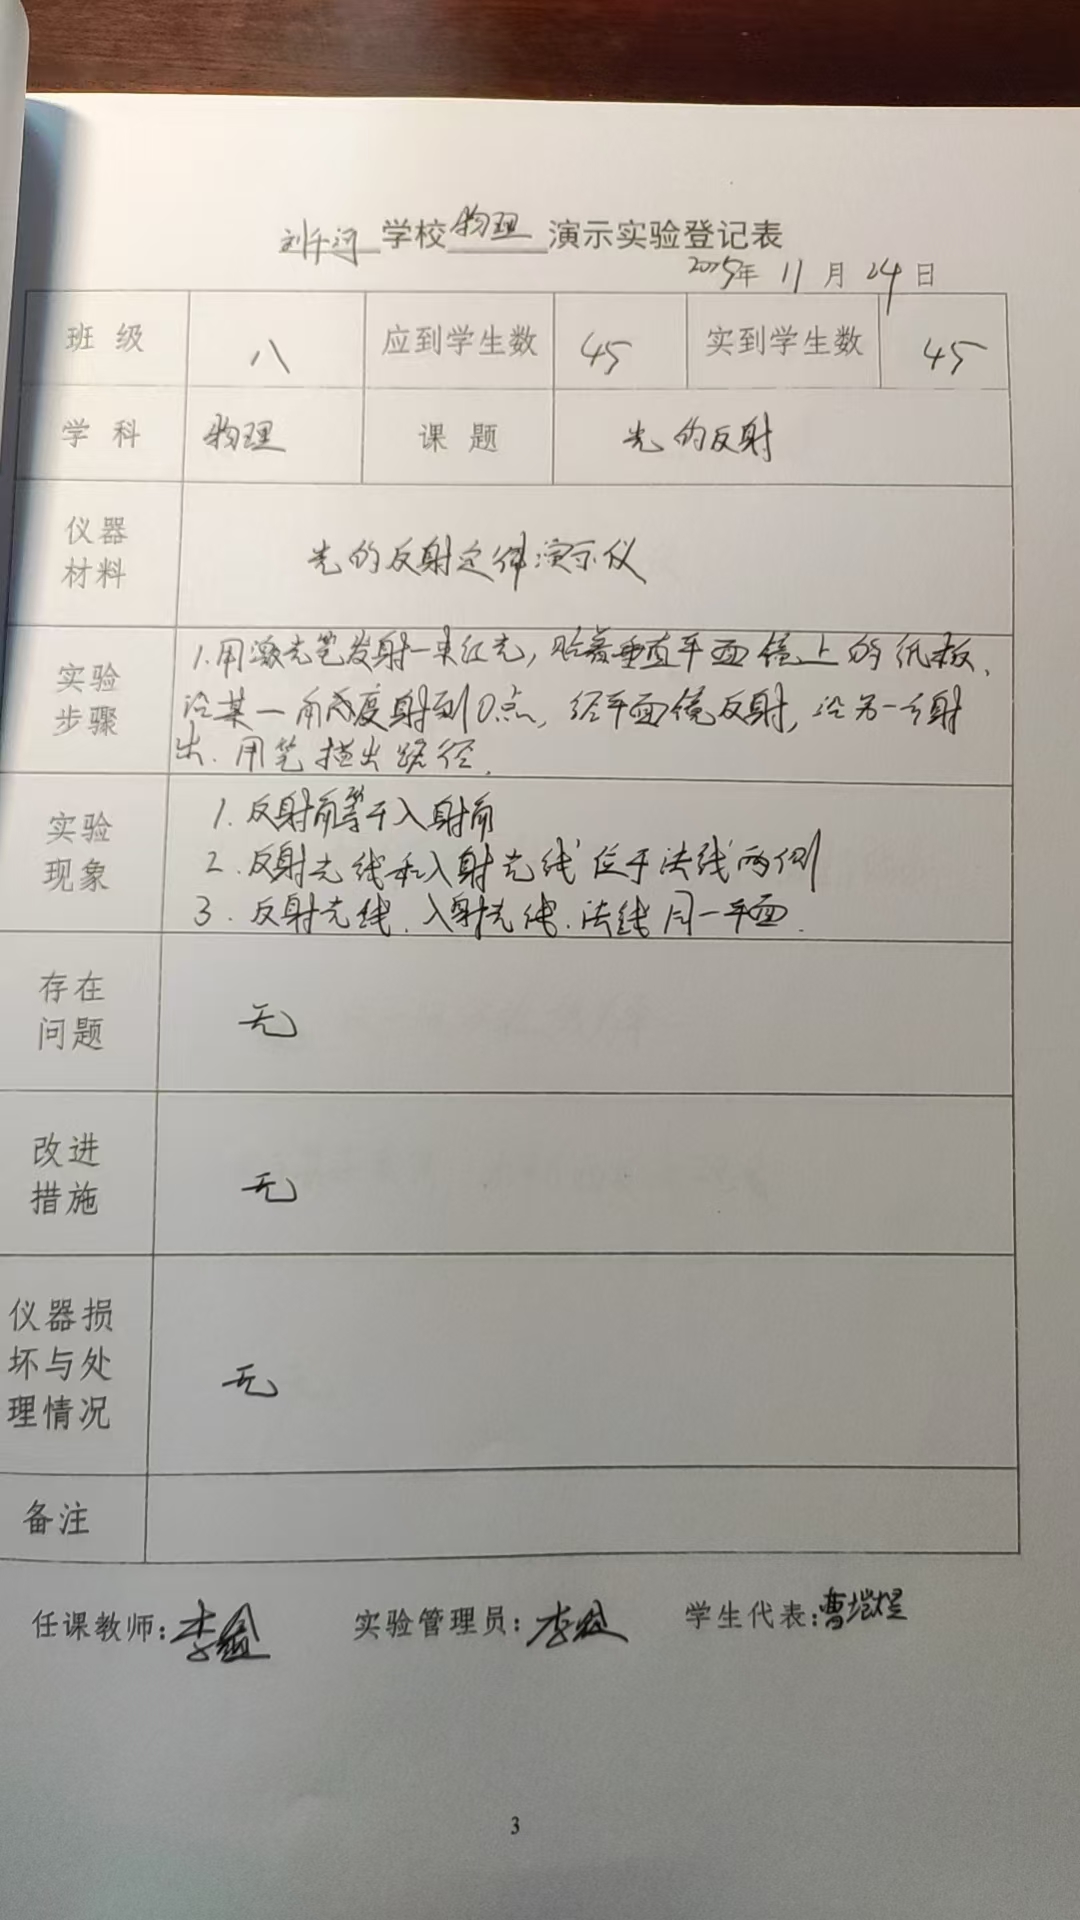 刘千河学校物理演示实验登记表
2025年 11月 24日
班级 八 应到学生数 45 实到学生数 45
学科 物理 课题 光的反射
仪器材料 光的反射定律演示仪
实验步骤 1.用激光笔发射一束红光，贴着垂直平面镜上的纸板，
沿某一角度射到O点，经平面镜反射，沿另一方射
出.用笔描出路径.
实验现象 1.反射角等于入射角
2.反射光线和入射光线位于法线两侧
3.反射光线.入射光线.法线同一平面.
存在问题 无
改进措施 无
仪器损坏与处理情况 无
备注
任课教师：李 实验管理员：李 学生代表：曹
3